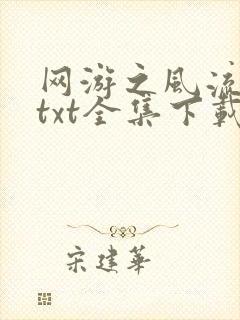 网游之风流
txt全集下载
宋建华